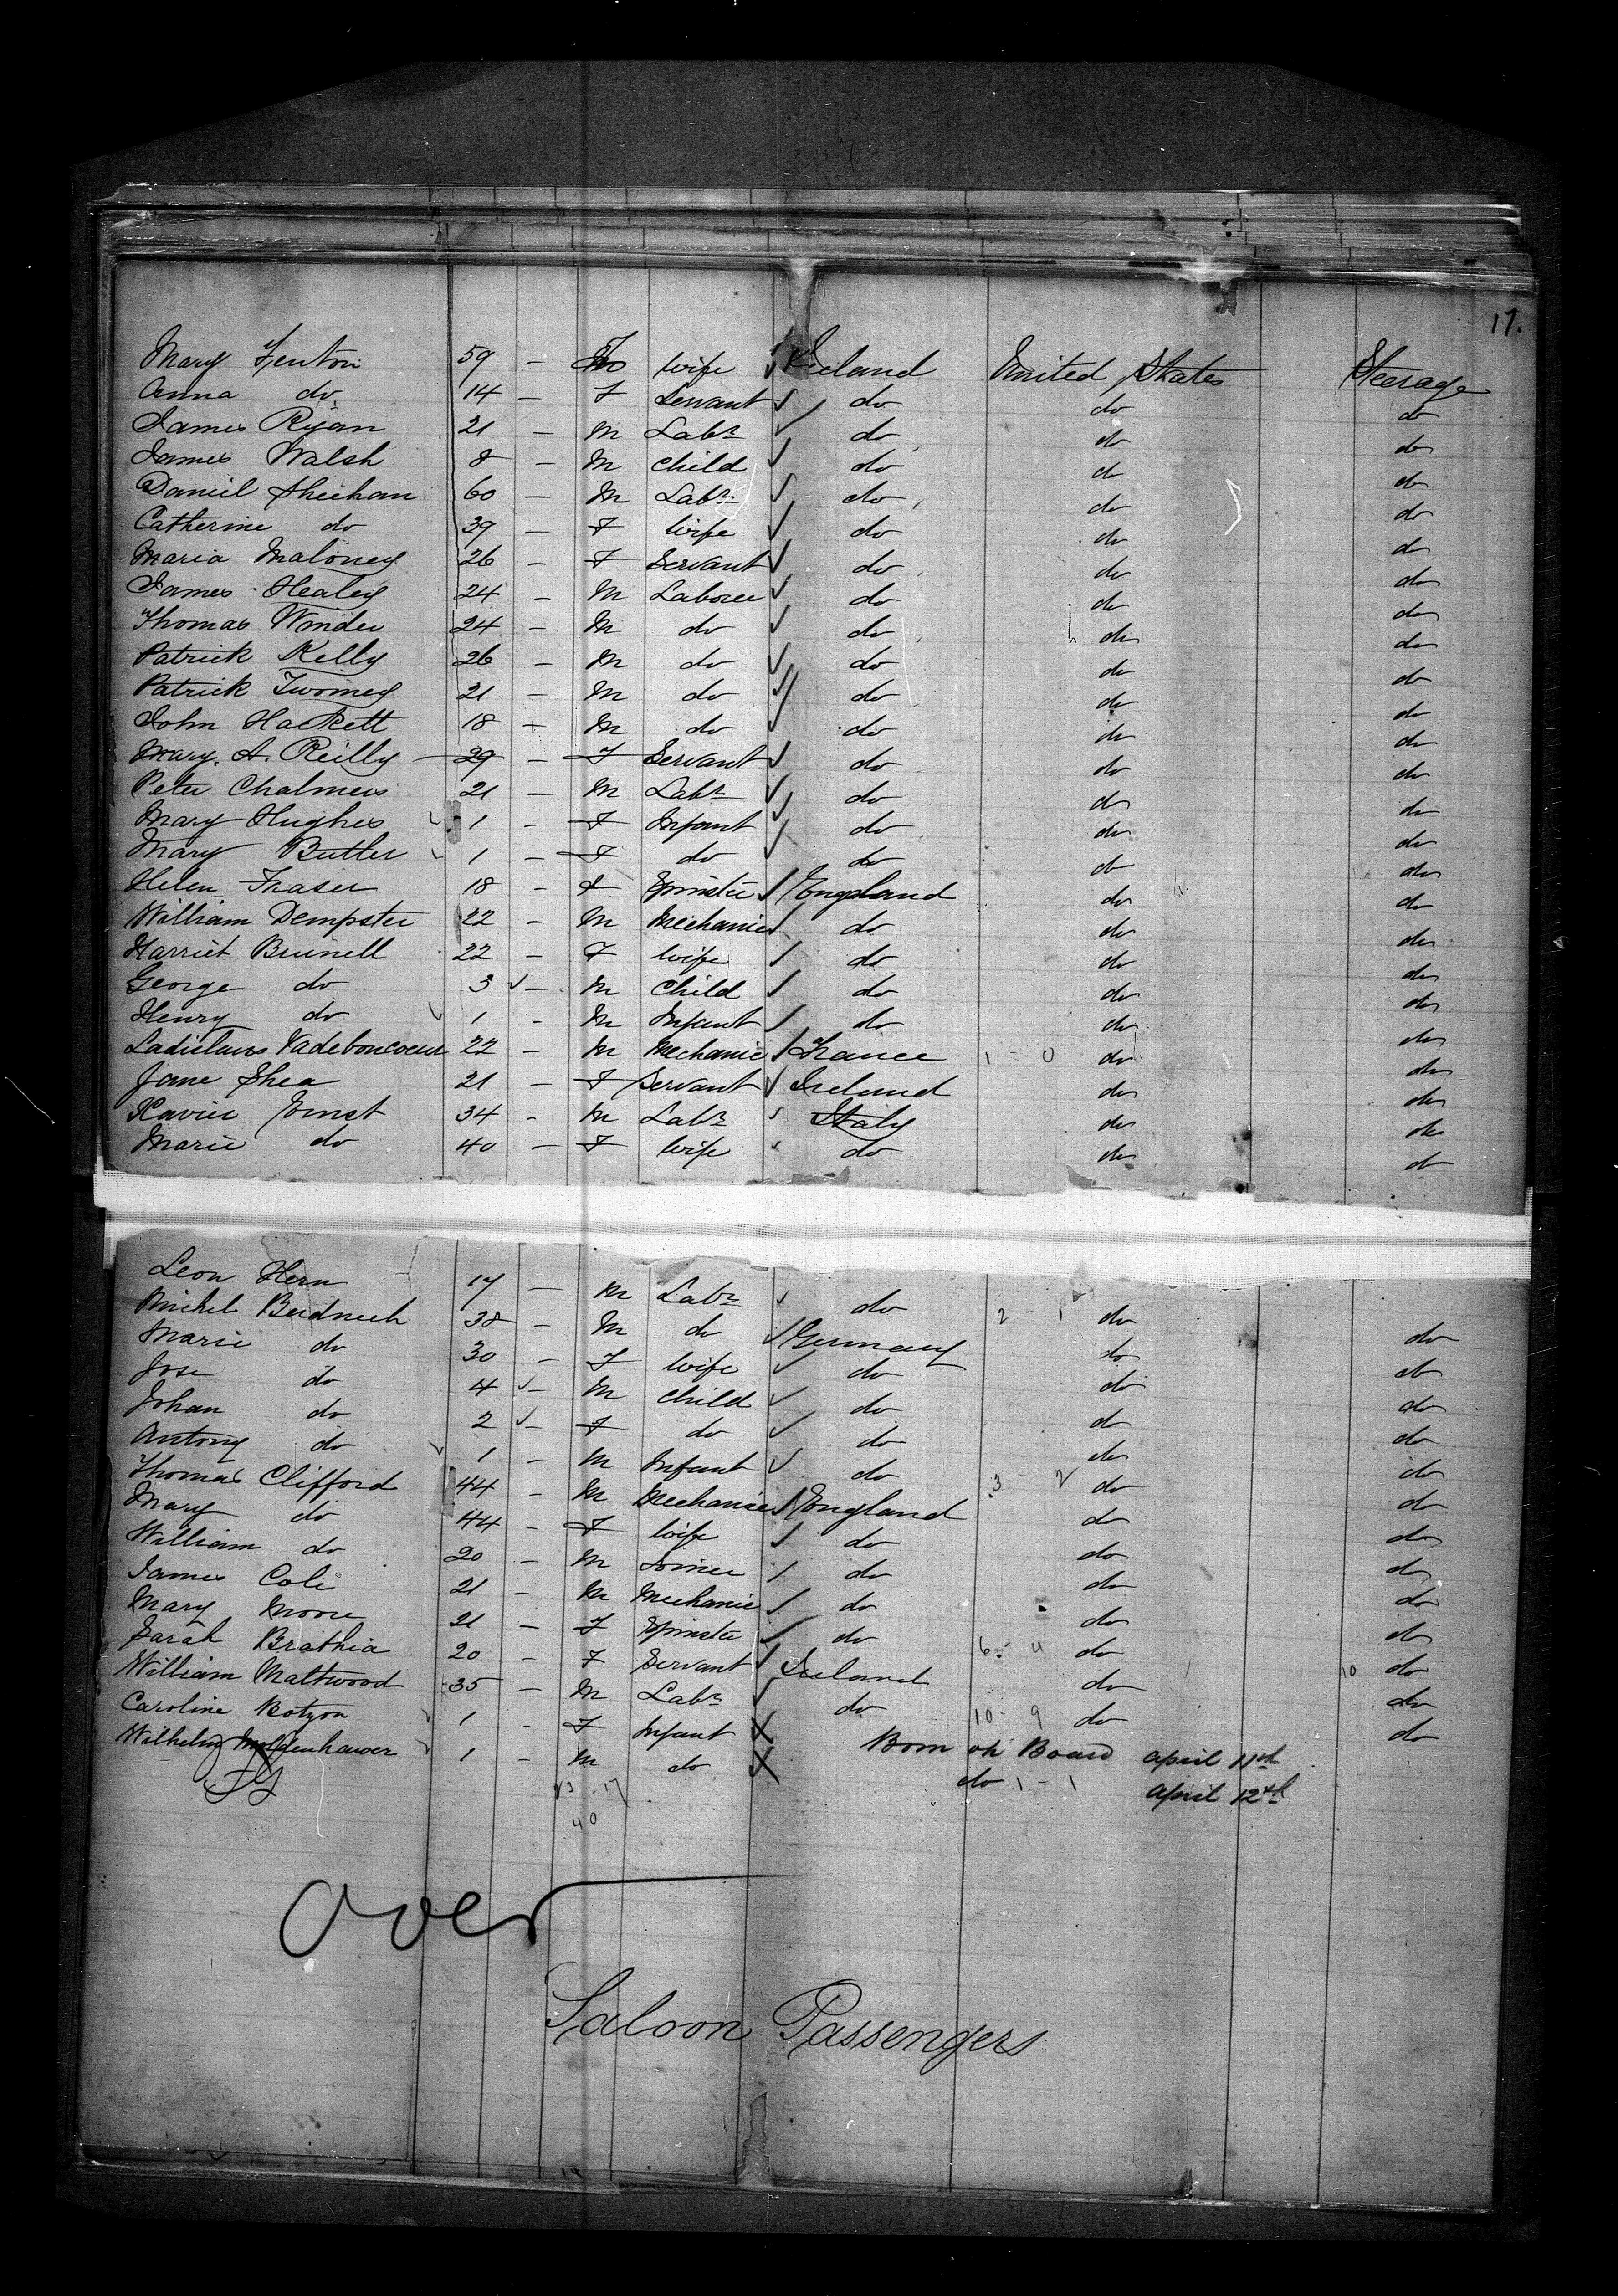 17.
Mary Fenton 59 - F wife ✓ Ireland United States Steerage
Anna do 14 - F Servant ✓ do do do
James Ryan 21 - M Labr ✓ do do do
James Walsh 8 - M Child ✓ do do do
Daniel Sheehan 60 - M Labr ✓ do do do
Catherine do 39 - F Wife ✓ do do do
Maria Maloney 26 - F Servant ✓ do do do
James Healey 24 - M Laborer ✓ do do do
Thomas Winder 24 - M do ✓ do do do
Patrick Kelly 26 - M do ✓ do do do
Patrick Twomey 21 - M do ✓ do do do
John Hackett 18 - M do ✓ do do do
Mary. A. Reilly 29 - F Servant ✓ do do do
Peter Chalmers 21 - M Labr ✓ do do do
Mary Hughes ✓ 1 - F Infant ✓ do do do
Mary Butler ✓ 1 - F do ✓ do do do
Helen Fraser 18 - F Spinster ✓ England do do
William Dempster 22 - M Mechanic ✓ do do do
Harriet Brunell 22 - F Wife ✓ do do do
George do 3 ✓ - M Child ✓ do do do
Henry do ✓ 1 - M Infant ✓ do do do
Ladislaus Vadeboncoeur 22 - M Mechanic ✓ France 1 - 0 do do
Jane Shea 21 - F Servant ✓ Ireland do do
Xavier Ernst 34 - M Labr ✓ Italy do do
Marie do 40 - F Wife ✓ do do do
Leon Hern 17 - M Labr ✓ do 2 - 1 do do
Michel 38 - M do ✓ Germany do do
Marie do 30 - F Wife ✓ do do do
Jose do 4 ✓ - M Child ✓ do do do
Johan do 2 ✓ - F do ✓ do do do
Antony do ✓ 1 - M Infant ✓ do do do
Thomas Clifford 44 - M Mechanic ✓ England 3 - 2 do do
Mary do 44 - F Wife ✓ do do do
William do 20 - M Joiner ✓ do do do
James Cole 21 - M Mechanic ✓ do do do
Mary Moore 21 - F Spinster ✓ do do do
Sarah Brathia 20 - F Servant ✓ Ireland 6 - 4 do 10 do
William Maltwood 35 - M Labr ✓ do do do
Caroline Botzon ✓ 1 - F Infant X Born on Board 10 - 9 do April 11th do
Wilhelm Moldenhawer ✓ 1 - M do X do 1 - 1 April 12th
13 - 17
40
Over
Saloon Passengers